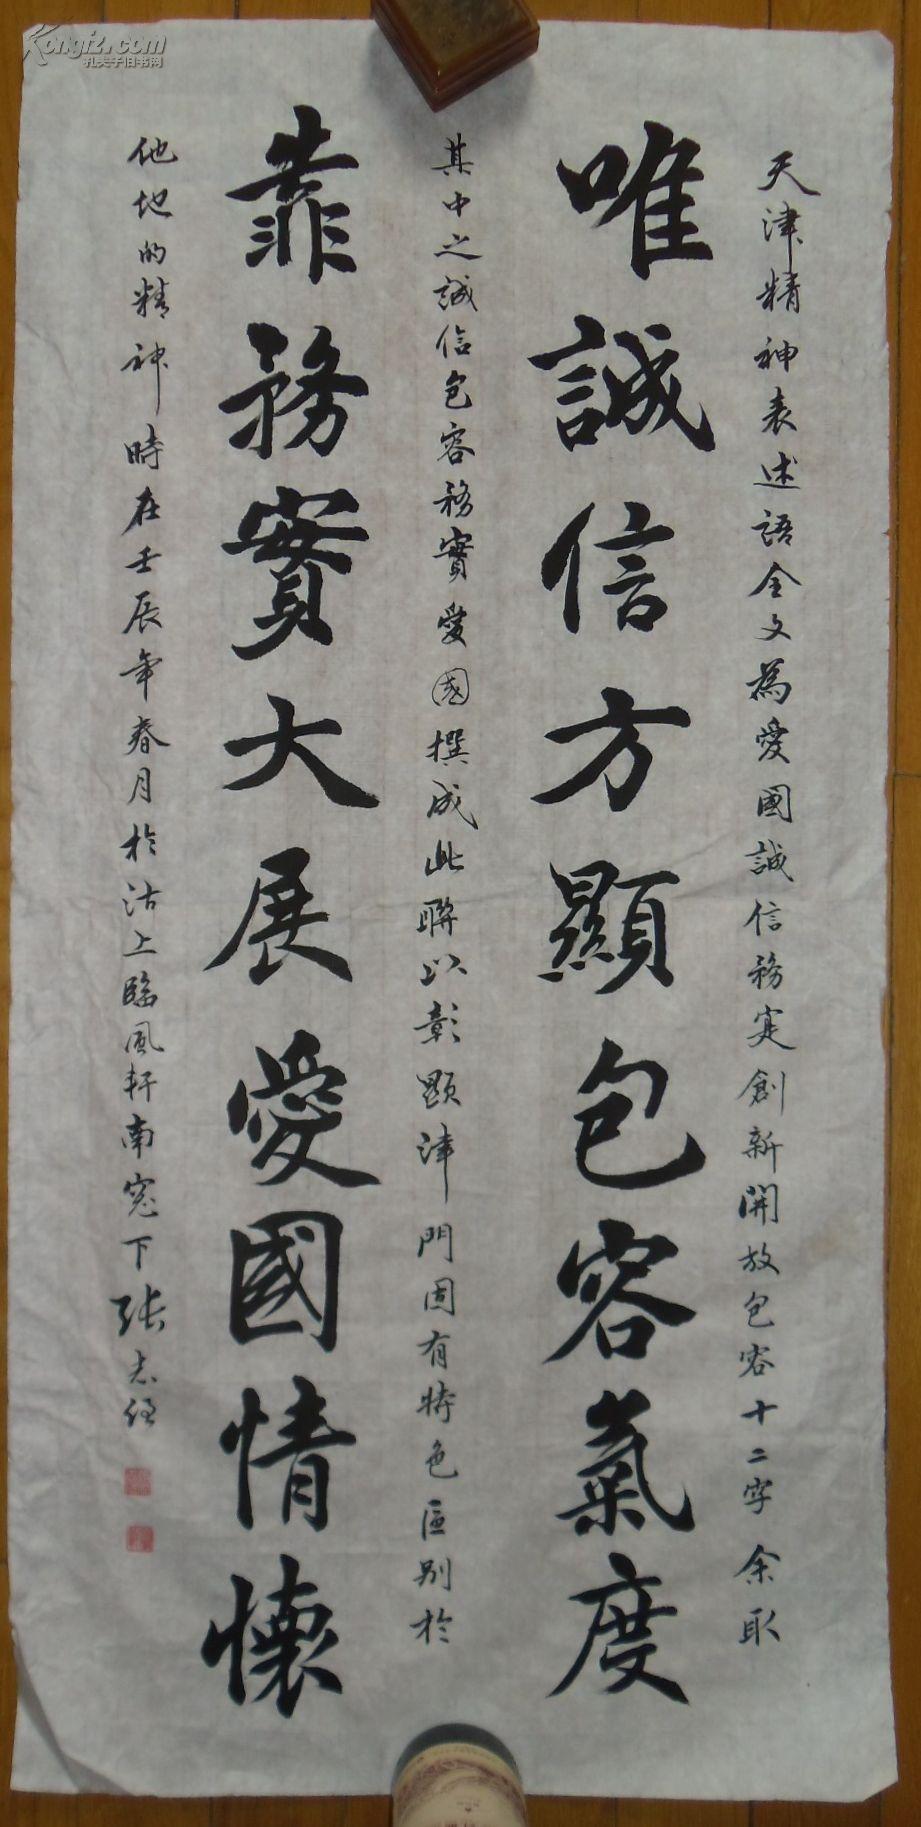 天津精神表述語全文為愛國誠信務寔創新開放包容十二字余取
唯誠信方顯包容氣度
其中之誠信包容務實愛國撰成此聯以彰顯津門固有特色區别於
靠務實大展愛國情懷
他地的精神時在壬辰年春月於沽上臨風軒南窓下張志
Kongfz.com
孔夫子旧书网